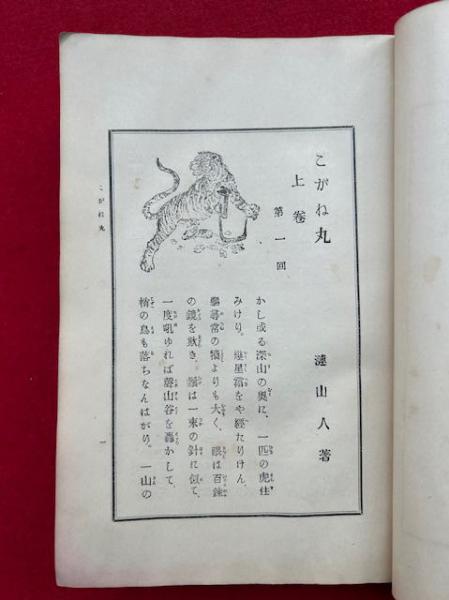 こがね丸
上巻
第一回
漣山人著
かし或る深山の奥に、一匹の虎住
みけり。幾星霜をや經たりけん、
軀尋常の犢よりも大く、眼は百錬
の鏡を欺き、鬚は一束の針に似て、
一度吼ゆれば聲山谷を轟かして、
梢の鳥も落ちなんばかり。一山の
こがね丸
一